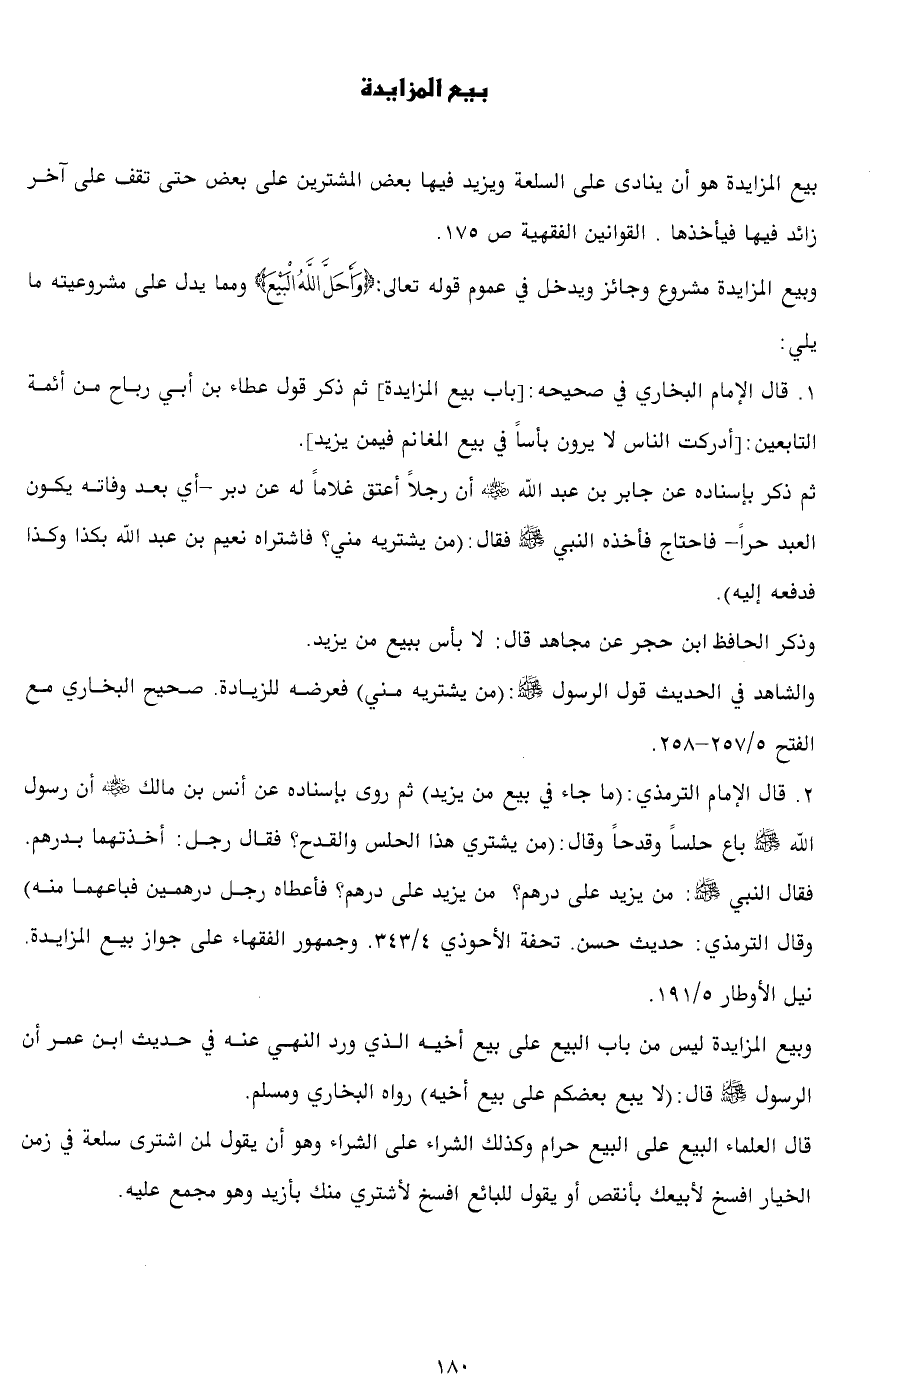 بيع المزايدة
بيع المزايدة هو أن ينادى على السلعة ويزيد فيها بعض المشترين على بعض حتى تقف على آخر
زائد فيها فيأخذها . القوانين الفقهية ص ١٧٥.
وبيع المزايدة مشروع وجائز ويدخل في عموم قوله تعالى:﴿وَأَحَلَّ اللَّهُ الْبَيْعَ﴾ ومما يدل على مشروعيته ما
يلي:
١. قال الإمام البخاري في صحيحه:[باب بيع المزايدة] ثم ذكر قول عطاء بن أبي رباح من أئمة
التابعين:[أدركت الناس لا يرون بأساً في بيع المغانم فيمن يزيد].
ثم ذكر بإسناده عن جابر بن عبد الله ﵁ أن رجلاً أعتق غلاماً له عن دبر –أي بعد وفاته يكون
العبد حراً– فاحتاج فأخذه النبي ﷺ فقال:(من يشتريه مني؟ فاشتراه نعيم بن عبد الله بكذا وكذا
فدفعه إليه).
وذكر الحافظ ابن حجر عن مجاهد قال: لا بأس ببيع من يزيد.
والشاهد في الحديث قول الرسول ﷺ:(من يشتريه مني) فعرضه للزيادة. صحيح البخاري مع
الفتح ٢٥٧/٥–٢٥٨.
٢. قال الإمام الترمذي:(ما جاء في بيع من يزيد) ثم روى بإسناده عن أنس بن مالك ﵁ أن رسول
الله ﷺ باع حلساً وقدحاً وقال:(من يشتري هذا الحلس والقدح؟ فقال رجل: أخذتهما بدرهم.
فقال النبي ﷺ: من يزيد على درهم؟ من يزيد على درهم؟ فأعطاه رجل درهمين فباعهما منه)
وقال الترمذي: حديث حسن. تحفة الأحوذي ٣٤٣/٤. وجمهور الفقهاء على جواز بيع المزايدة.
نيل الأوطار ١٩١/٥.
وبيع المزايدة ليس من باب البيع على بيع أخيه الذي ورد النهي عنه في حديث ابن عمر أن
الرسول ﷺ قال:(لا يبع بعضكم على بيع أخيه) رواه البخاري ومسلم.
قال العلماء البيع على البيع حرام وكذلك الشراء على الشراء وهو أن يقول لمن اشترى سلعة في زمن
الخيار افسخ لأبيعك بأنقص أو يقول للبائع افسخ لأشتري منك بأزيد وهو مجمع عليه.
١٨٠